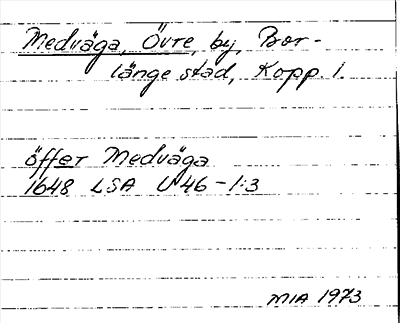 Medväga, Övre, by, Bor-
länge stad, Kopp. l.
öffer Medväga
1648 LSA U 46 - 1:3
MIA 1973